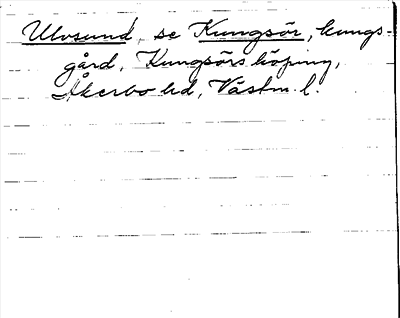 Ulvsund, se Kungsör, kungs-
gård, Kungsörs köping,
Åkerbo hd, Västm. l.